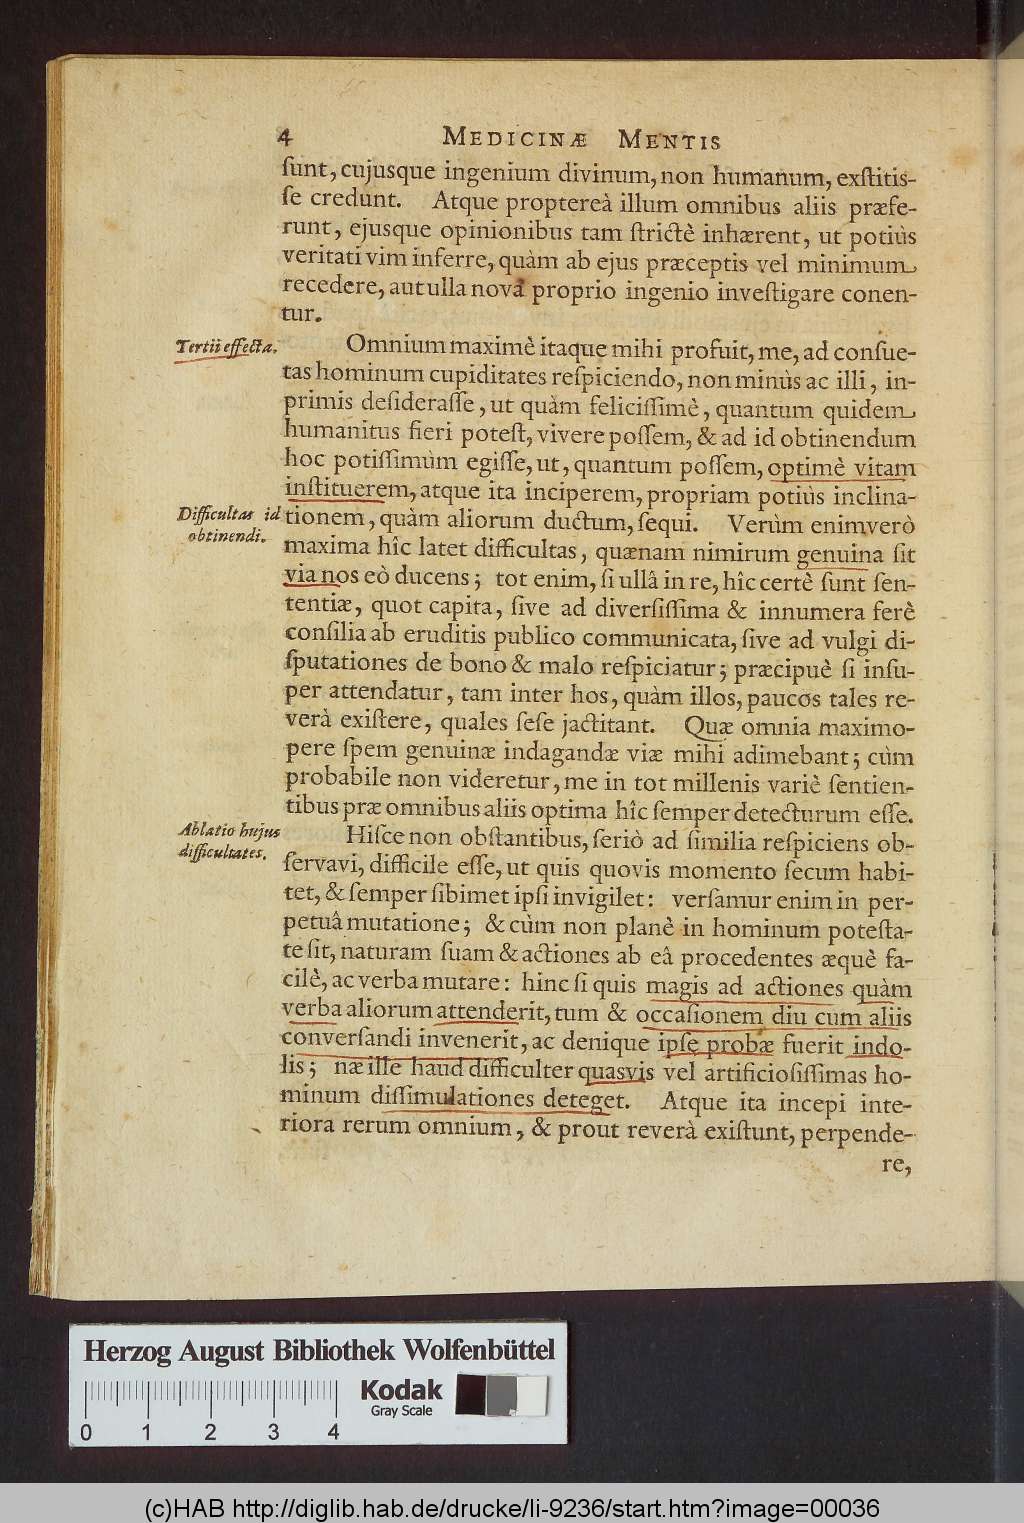 4 MEDICINÆ MENTIS
ſunt, cujusque ingenium divinum, non humanum, exſtitiſ-
ſe credunt. Atque proptereà illum omnibus aliis præfe-
runt, ejusque opinionibus tam ſtrictè inhærent, ut potiùs
veritati vim inferre, quàm ab ejus præceptis vel minimum
recedere, aut ulla nova proprio ingenio inveſtigare conen-
tur.
Tertii effecta.
Omnium maximè itaque mihi profuit, me, ad conſue-
tas hominum cupiditates reſpiciendo, non minùs ac illi, in-
primis deſideraſſe, ut quàm feliciſſimè, quantum quidem
humanitus fieri poteſt, vivere poſſem, & ad id obtinendum
hoc potiſſimùm egiſſe, ut, quantum poſſem, optimè vitam
inſtituerem, atque ita inciperem, propriam potiùs inclina-
Difficultas id
obtinendi.
tionem, quàm aliorum ductum, ſequi. Verùm enimverò
maxima hîc latet difficultas, quænam nimirum genuina ſit
via nos eò ducens; tot enim, ſi ullâ in re, hîc certè ſunt ſen-
tentiæ, quot capita, ſive ad diverſiſſima & innumera ferè
conſilia ab eruditis publico communicata, ſive ad vulgi di-
ſputationes de bono & malo reſpiciatur; præcipuè ſi inſu-
per attendatur, tam inter hos, quàm illos, paucos tales re-
verà exiſtere, quales ſeſe jactitant. Quæ omnia maximo-
pere ſpem genuinæ indagandæ viæ mihi adimebant; cùm
probabile non videretur, me in tot millenis variè ſentien-
tibus præ omnibus aliis optima hîc ſemper detecturum eſſe.
Ablatio hujus
difficultates.
Hiſce non obſtantibus, ſeriò ad ſimilia reſpiciens ob-
ſervavi, difficile eſſe, ut quis quovis momento ſecum habi-
tet, & ſemper ſibimet ipſi invigilet: verſamur enim in per-
petuâ mutatione; & cùm non planè in hominum poteſta-
te ſit, naturam ſuam & actiones ab eâ procedentes æquè fa-
cilè, ac verba mutare: hinc ſi quis magis ad actiones quàm
verba aliorum attenderit, tum & occaſionem diu cum aliis
converſandi invenerit, ac denique ipſe probæ fuerit indo-
lis; næ ille haud difficulter quasvis vel artificioſiſſimas ho-
minum diſſimulationes deteget. Atque ita incepi inte-
riora rerum omnium, & prout reverà exiſtunt, perpende-
re,
Herzog August Bibliothek Wolfenbüttel
Kodak
Gray Scale
0 1 2 3 4
(c)HAB http://diglib.hab.de/drucke/li-9236/start.htm?image=00036